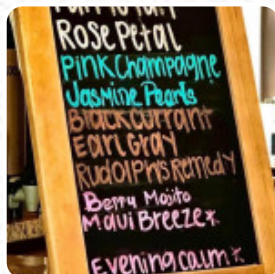 Rose Petal
Pink Champagne
Jasmine Pearls
Blackcurrant
Earl Gray
Rudolphs Remedy
Berry Mojito
Maui Breeze*
Evening calm*